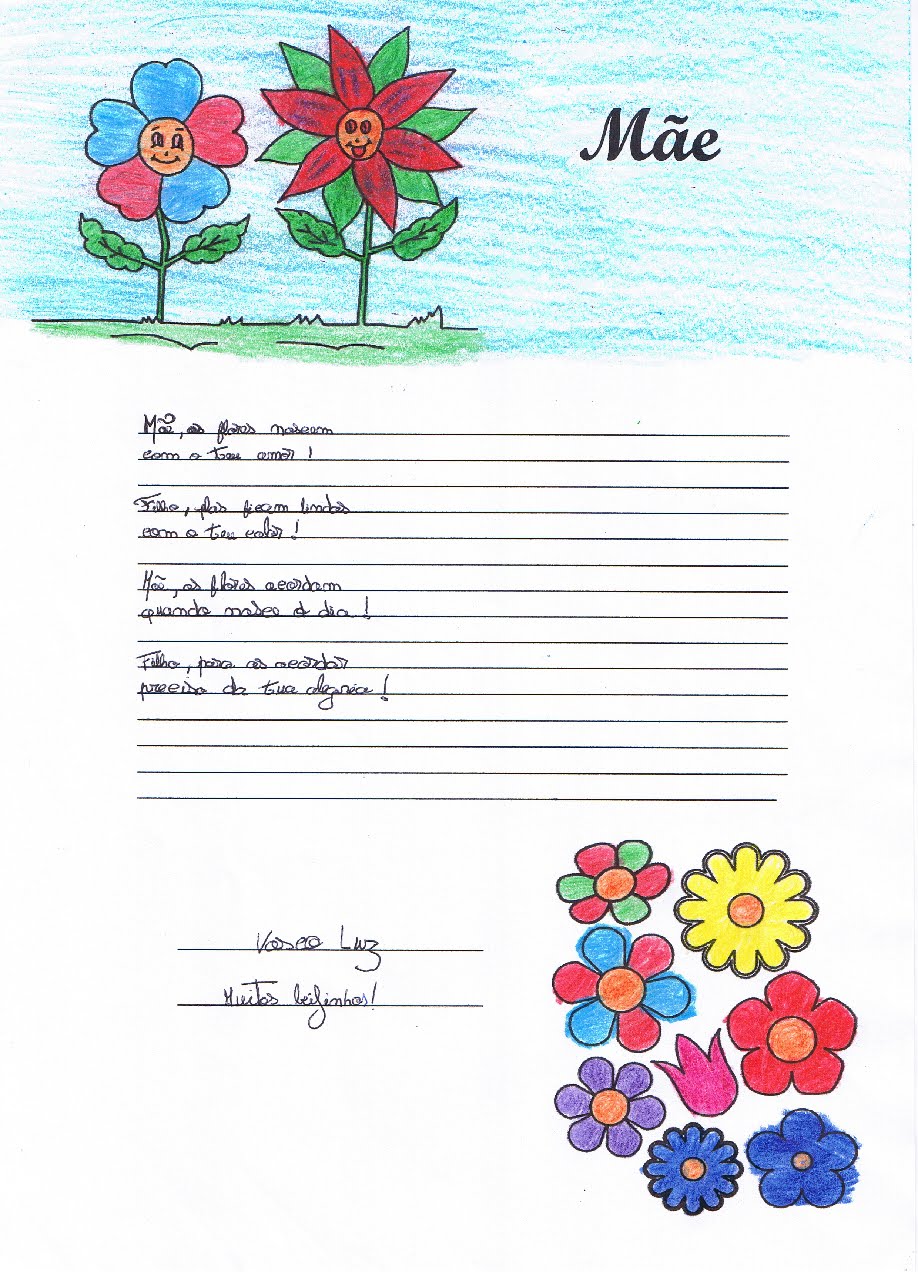 Mãe
Mãe, as flores nascem
com o teu amor !
Filho, elas ficam lindas
com o teu calor !
Mãe, as flores acordam
quando nasce o dia !
Filho, para as acordar
preciso da tua alegria !
Vasco Luz
Muitos beijinhos!